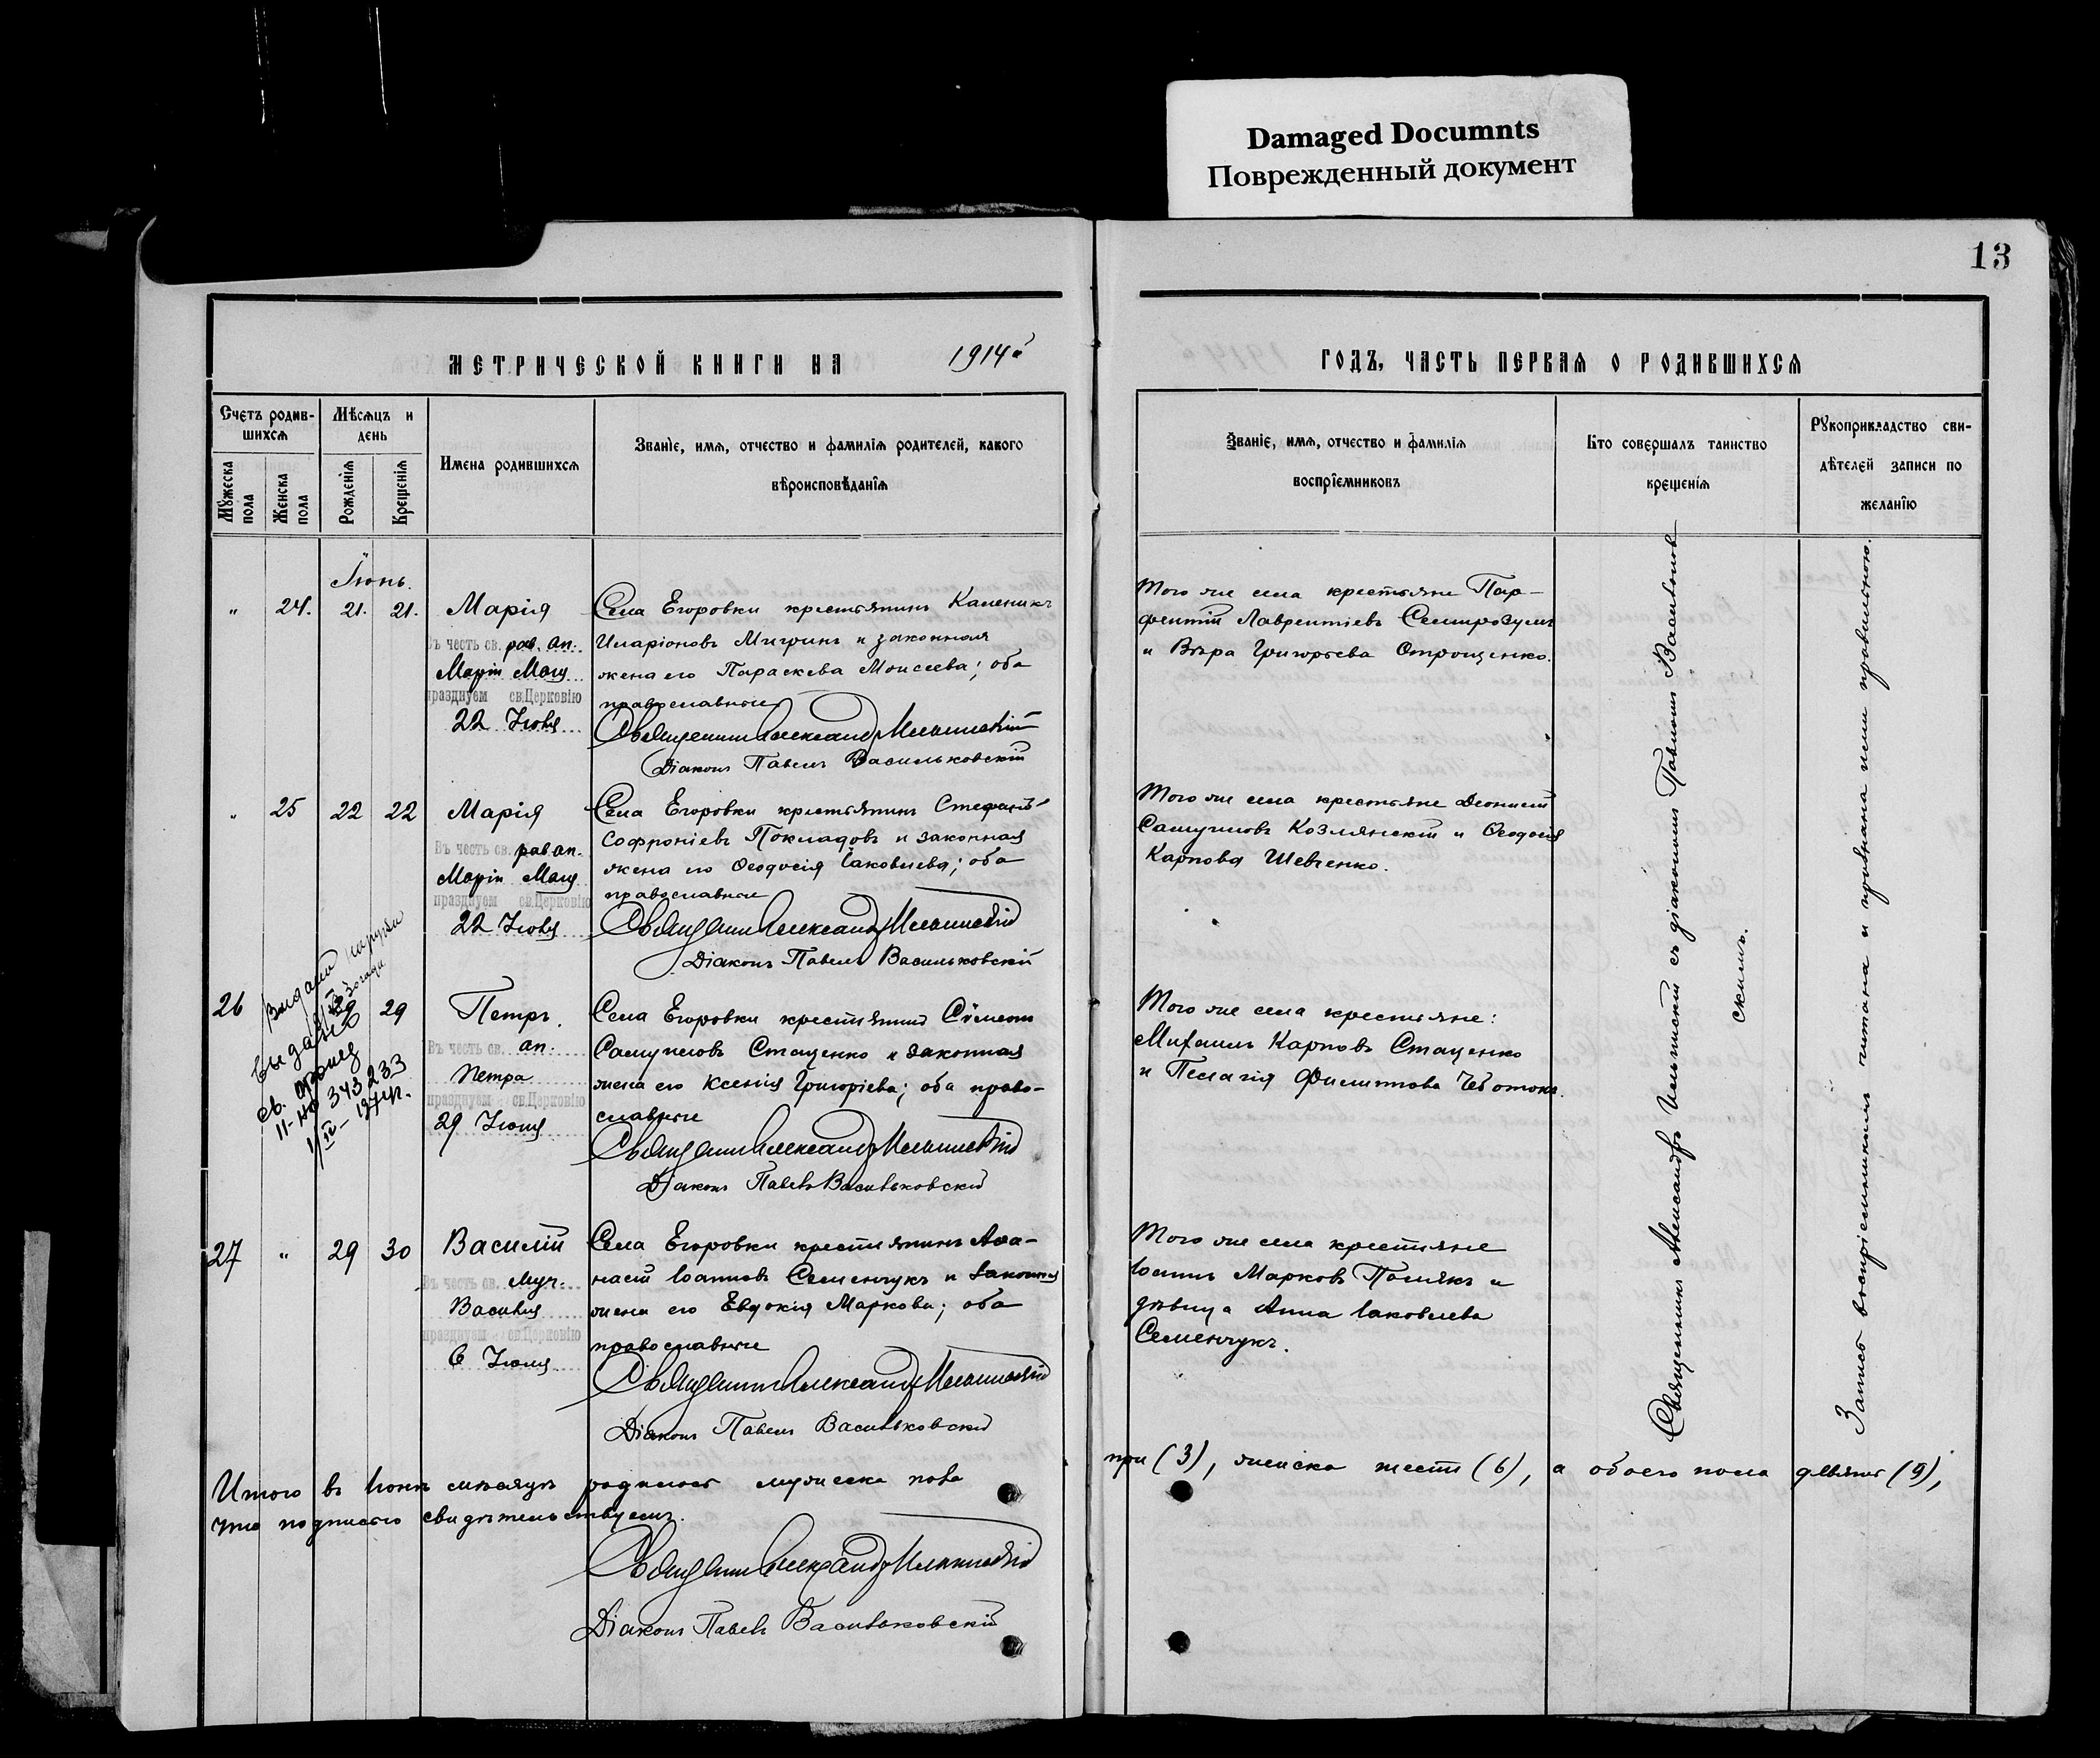 Damaged Documnts
Поврежденный документ
13
МЕТРИЧЕСКОЙ КНИГИ НА 1914й
ГОДЪ, ЧАСТЬ ПЕРВАЯ О РОДИВШИХСЯ
Счетъ родив-
шихся
Мужеска пола
Женска пола
Мѣсяцъ и
день
Рожденія
Крещенія
Имена родившихся
Званіе, имя, отчество и фамилія родителей, какого
вѣроисповѣданія
Званіе, имя, отчество и фамилія
воспріемниковъ
Кто совершалъ таинство
крещенія
Рукоприкладство сви-
дѣтелей записи по
желанію
Іюнь.
" 24. 21. 21.
Марія
Въ честь св. рав. ап.
Маріи Магд
празднуем св.Церковію
22 Іюля
Села Егоровки крестьянинъ Каленикъ
Иларіоновъ Мигринъ и законная
жена его Параскева Моисеева; оба
православные
Священникъ Александръ
Діаконъ Павелъ Васильковскій
Того же села крестьяне Пар-
фентій Лаврентіевъ Семирозумъ
и Вѣра Григорьева Строщенко.
" 25 22 22
Марія
Въ честь св. рав ап.
Маріи Магд
празднуем св.Церковію
22 Іюля
Села Егоровки крестьянинъ Стефанъ
Софроніевъ Покладовъ и законная
жена его Ѳеодосія Іаковлева; оба
православные
Священникъ Александръ
Діаконъ Павелъ Васильковскій
Того же села крестьяне Діонисій
Самуиловъ Козлянскій и Ѳеодосія
Карпова Шевченко.
26 29 29
выдано
св.
11-НО 343233
Петръ.
Въ честь св. ап.
Петра
празднуем св.Церковію
29 Іюня
Села Егоровки крестьянинъ Сѵмеонъ
Самуиловъ Стаценко и законная
жена его Ксенія Григоріева; оба право-
славные
Священникъ Александръ
Діаконъ Павелъ Васильковскій
Того же села крестьяне:
Михаилъ Карповъ Стаценко
и Пелагія Филиппова Чеботокъ.
27 " 29 30
Василій
Въ честь св. муч.
Василія
празднуем св.Церковію
6 Іюля
Села Егоровки крестьянинъ Аѳа-
насій Іоанновъ Семенчукъ и законная
жена его Евдокія Маркова; оба
православные
Священникъ Александръ
Діаконъ Павелъ Васильковскій
Того же села крестьяне
Іоаннъ Марковъ Полякъ и
дѣвица Анна Іаковлева
Семенчукъ.
Священникъ Александръ съ діакономъ Павломъ Васильков-
скимъ.
Запись воспріемникамъ читана и признана ими правильною.
Итого въ Іюнѣ мѣсяцѣ родилось мужеска пола три (3), женска шесть (6), а обоего пола девять (9),
что подписью свидѣтельствуемъ.
Священникъ Александръ
Діаконъ Павелъ Васильковскій